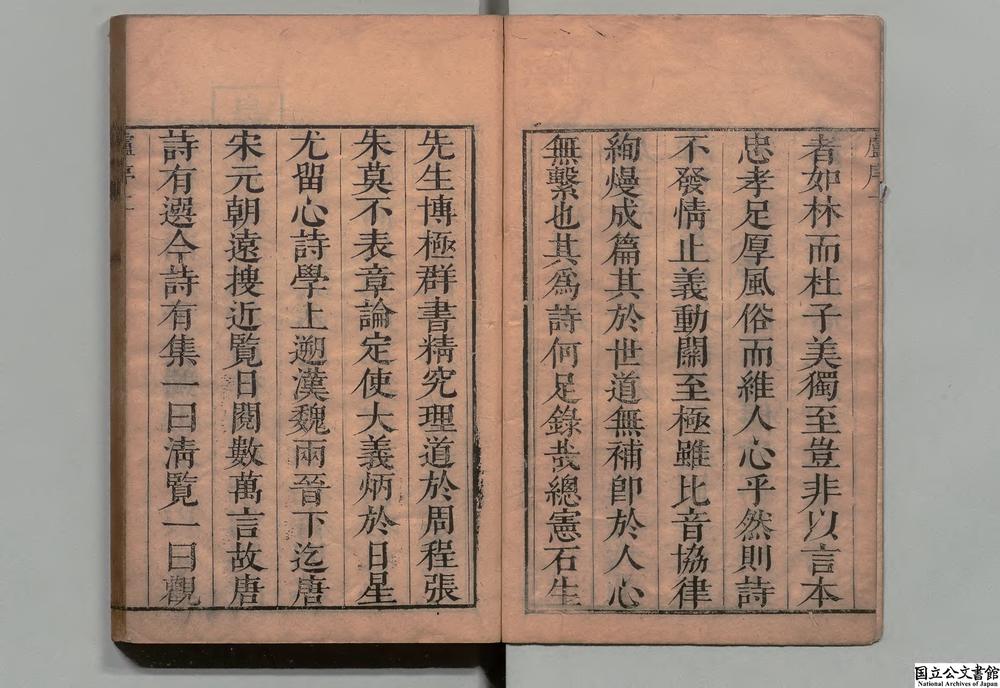 者如林而杜子美獨至豈非以言本
忠孝足厚風俗而維人心乎然則詩
不發情止義動關至極雖比音協律
絢熳成篇其於世道無補卽於人心
無繫也其爲詩何足錄哉總憲石生
先生博極群書精究理道於周程張
朱莫不表章論定使大義炳於日星
尤留心詩學上遡漢魏兩晉下迄唐
宋元朝遠搜近覽日閱數萬言故唐
詩有選今詩有集一曰淸覽一曰觀
国立公文書館
National Archives of Japan